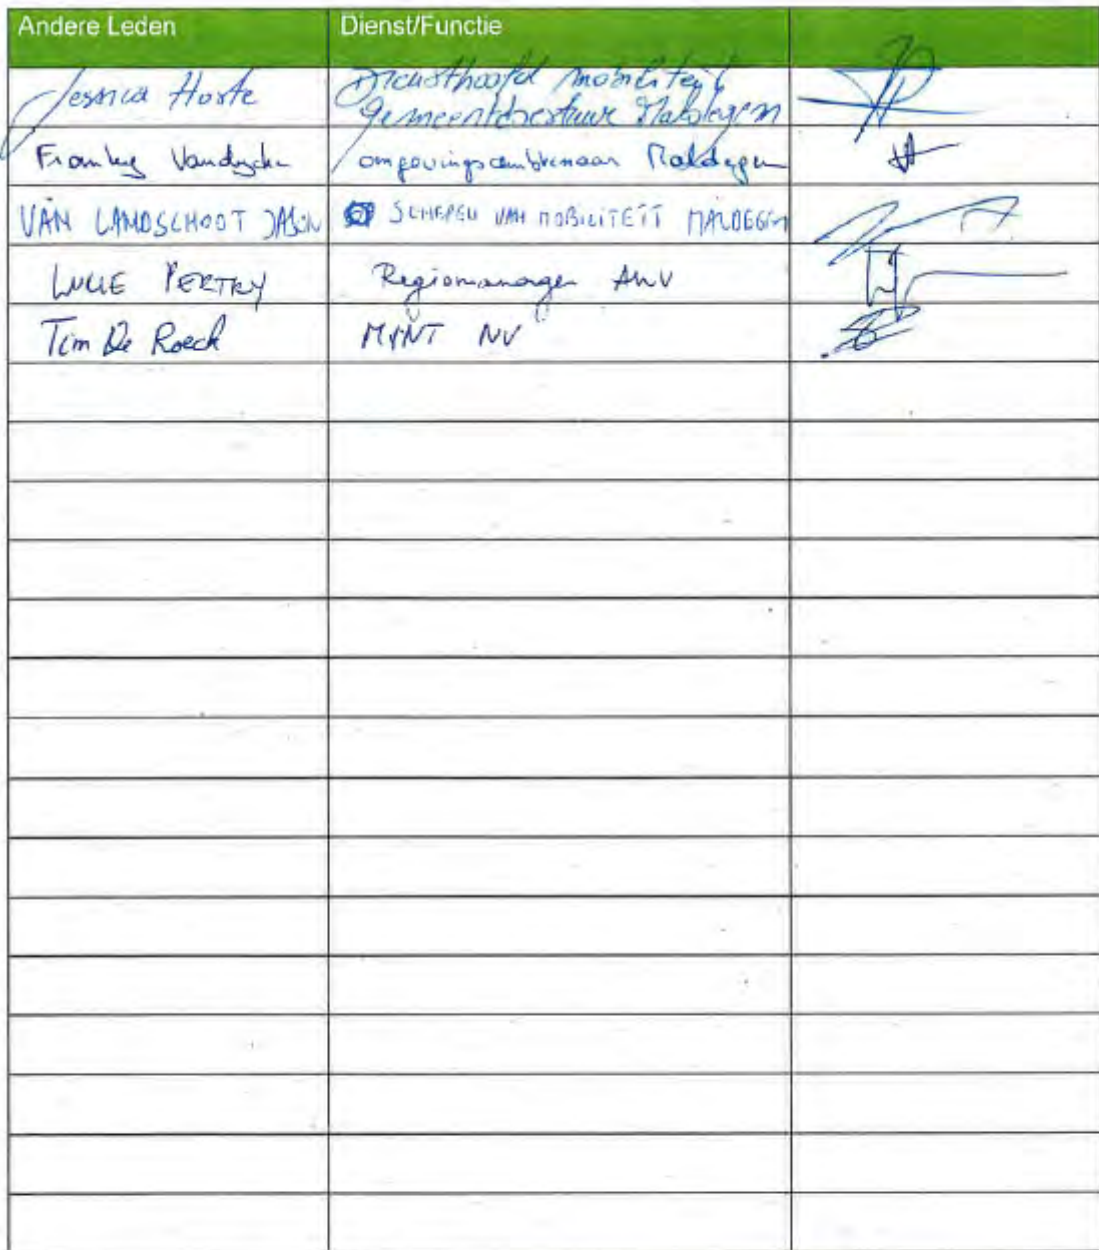 Andere Leden Dienst/Functie
Jessica Hoste Diensthoofd mobiliteit
gemeentebestuur Maldegem
Franky Vandycke omgevingsambtenaar Maldegem
VAN LANDSCHOOT JASON SCHEPEN VAN MOBILITEIT MALDEGEM
PERTRY Regiomanager AWV
Tim De Roeck MINT NV